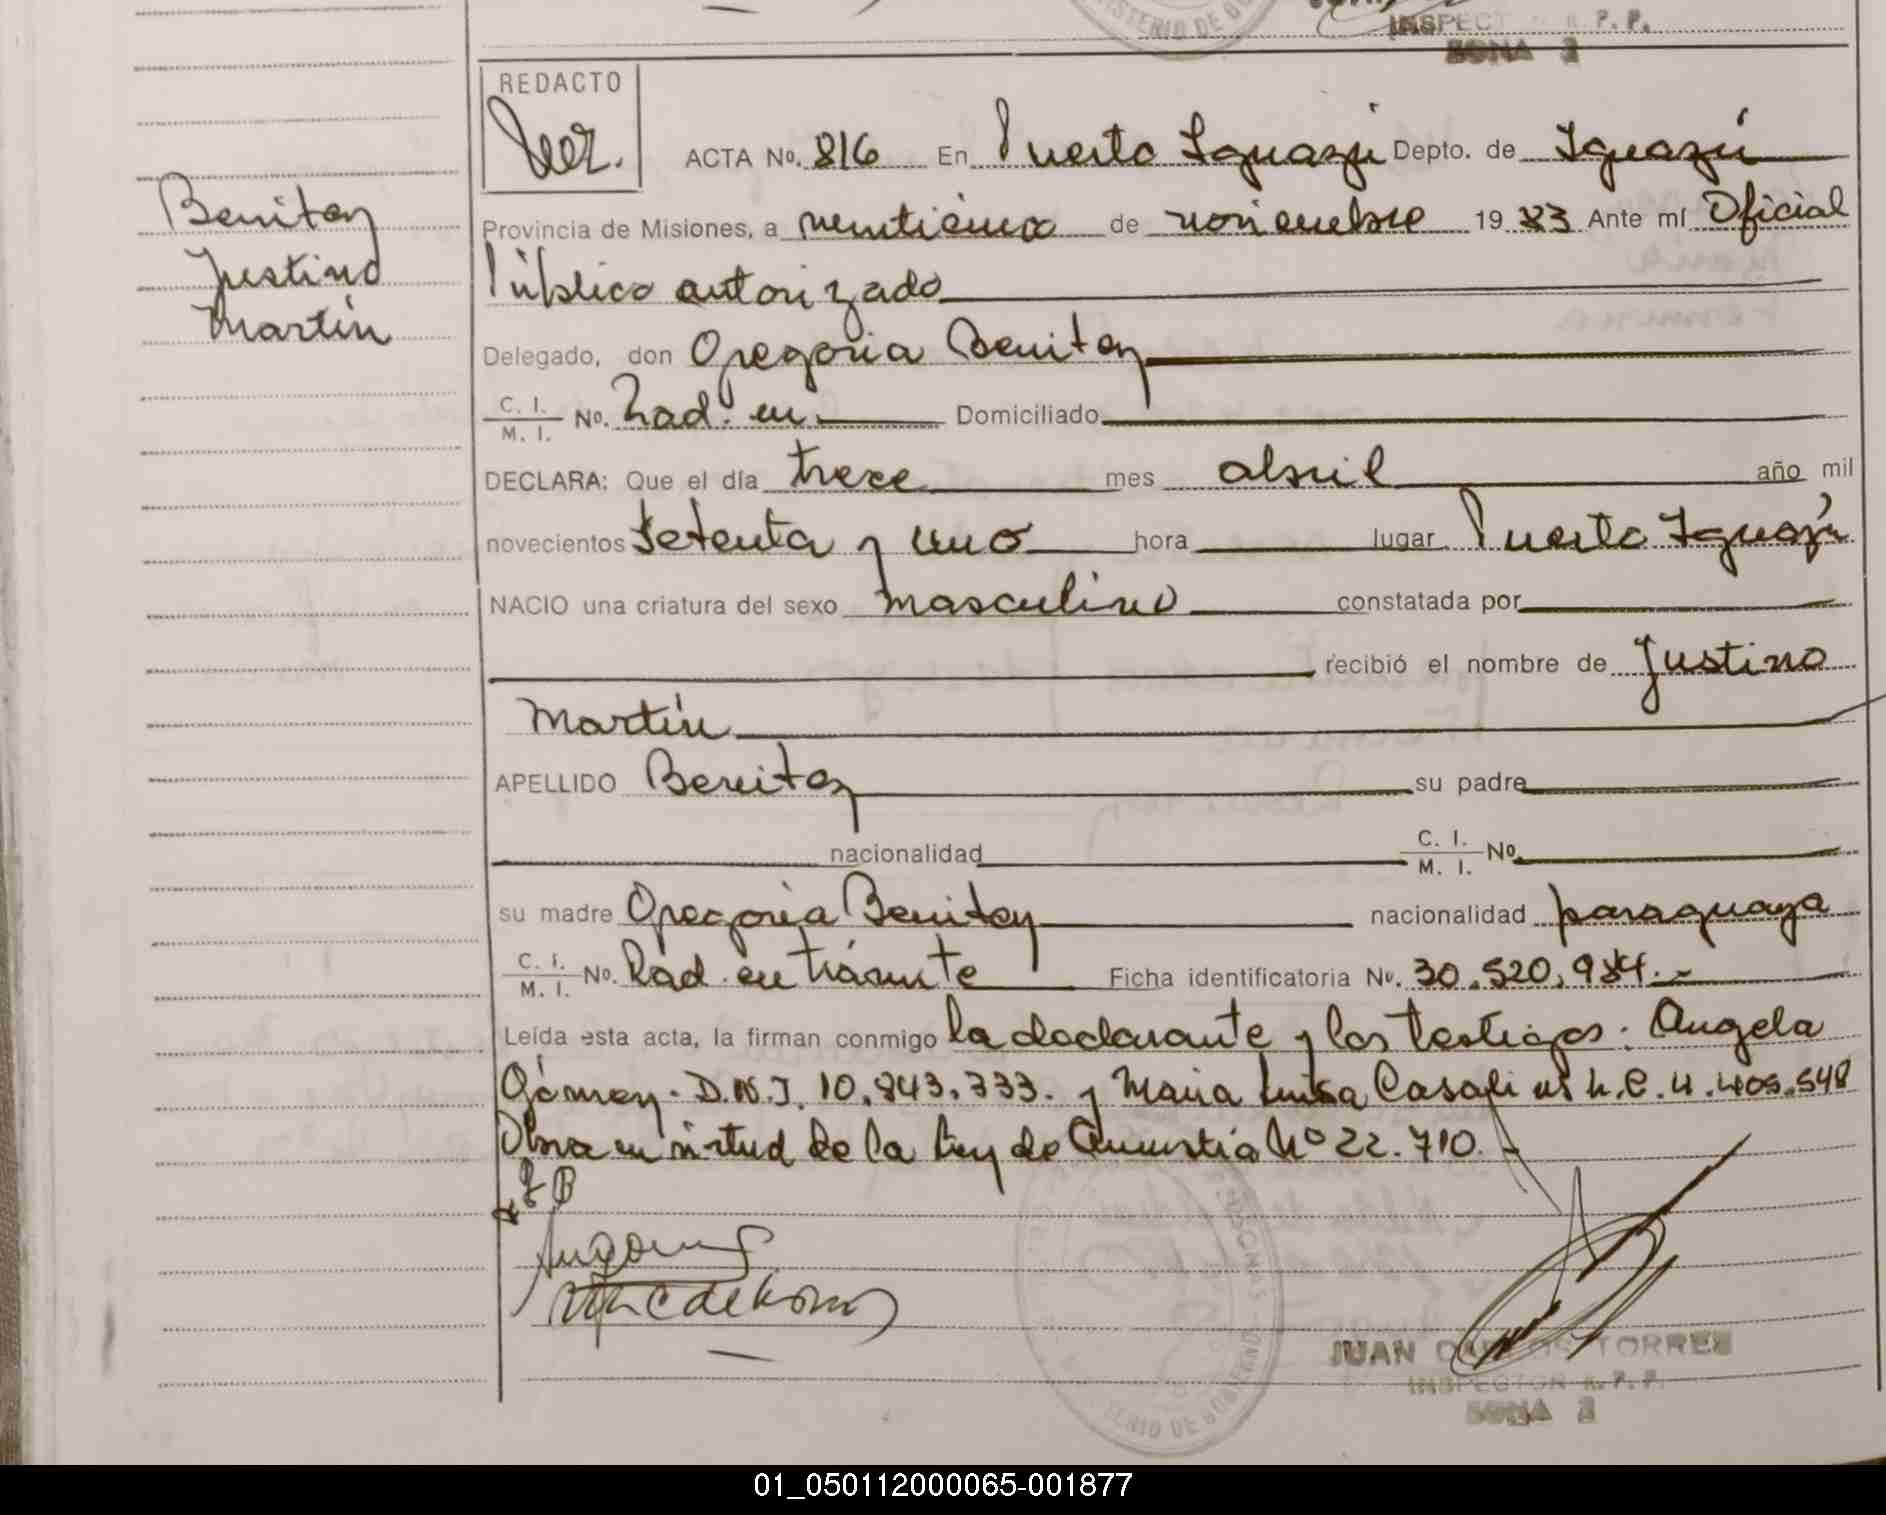 MINISTERIO DE GO
INSPECT R. P. P.
ZONA 2
REDACTO
ACTA No. 816 En Puerto Iguazú Depto. de Iguazú
Benitez
Justino
Martín
Provincia de Misiones, a veinticinco de noviembre 1983 Ante mí Oficial
Público autorizado
Delegado, don Gregoria Benitez
C. I.
M. I. No. Rad. en Domiciliado
DECLARA: Que el día trece mes abril año mil
novecientos setenta y uno hora lugar Puerto Iguazú
NACIO una criatura del sexo masculino constatada por
recibió el nombre de Justino
Martín
APELLIDO Benitez su padre
nacionalidad C. I.
M. I. No.
su madre Gregoria Benitez nacionalidad paraguaya
C. I.
M. I. No. Rad. en trámite Ficha identificatoria No. 30.520.984.-
Leída esta acta, la firman conmigo la declarante y los testigos: Angela
Gómez. D.N.I. 10.843.333. y Maria Luisa L.C. 4.405.548
Obra en virtud de la Ley de Amnistía No 22.710.-
G B
JUAN CARLOS TORRES
INSPECTOR R. P. P.
ZONA 2
MINISTERIO DE GOBIERNO
01_050112000065-001877